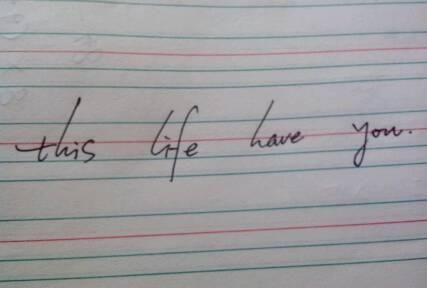 this life have you.